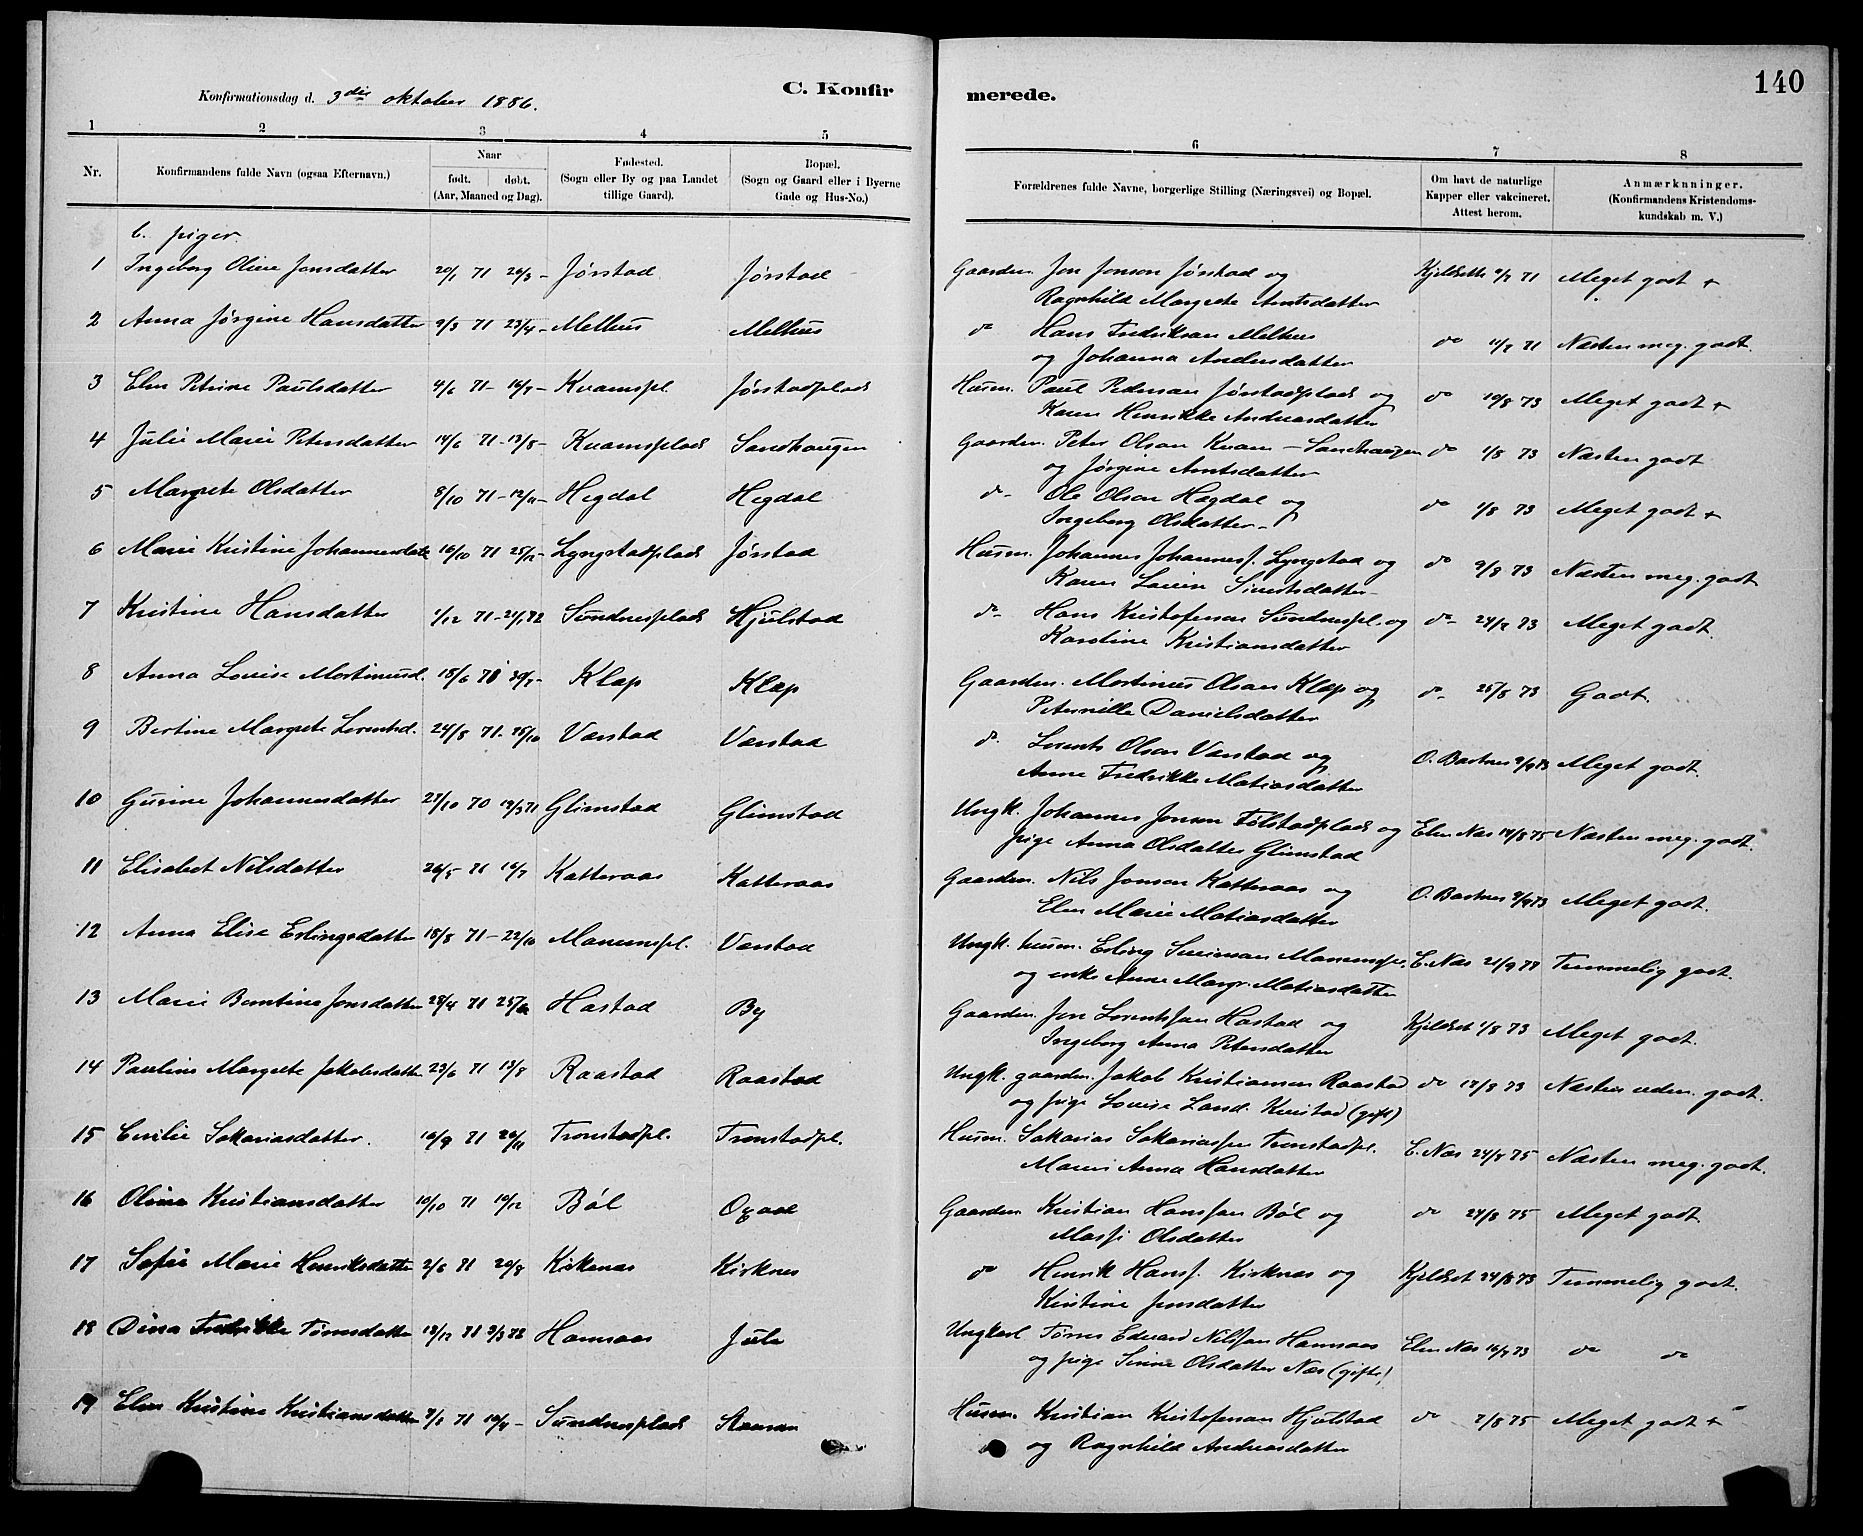 140
Konfirmationsdag d. 3die oktober 1886.
C. Konfirmerede.
1 2 3 4 5 6 7 8
Nr.
Konfirmandens fulde Navn (ogsaa Efternavn.)
Naar
født. døbt.
(Aar, Maaned og Dag).
Fødested.
(Sogn eller By og paa Landet
tillige Gaard).
Bopæl.
(Sogn og Gaard eller i Byerne
Gade og Hus-No.)
Forældrenes fulde Navne, borgerlige Stilling (Næringsvei) og Bopæl.
Om havt de naturlige
Kapper eller vakcineret.
Attest herom.
Anmærkninger.
(Konfirmandens Kristendoms-
kundskab m. V.)
b. piger.
1 Ingeborg Oline Jonsdatter 20/1 71 26/3 - Jørstad Jørstad Gaardm. Jon Jonson Jørstad og Kjeldseth 71 Meget godt +
Ragnhild Margrete Arntsdatter
2 Anna Jørgine Hansdatter 9/3 71 23/4 - Melhus Melhus do Hans Fredriksen Melhus do 71 Næsten meg. godt.
og Johanna Andersdatter
3 Elen Petrine Paulsdatter 4/6 71 - 16/7 - Kvamspl. Jørstadplads Husm. Paul Pedersen Jørstadplads og do 10/8 73 Meget godt +
Karen Henrikke Andreasdatter
4 Julie Marie Petersdatter 14/6 71 - 13/8 - Kvamsplads Sandhaugen Gaardm. Peter Olsen Kvam - Sandhaugen do 1/8 73 Næsten godt
og Jørgine Arntsdatter
5 Margrete Olsdatter 8/10 71 - 12/11 - Hegdal Hegdal do Ole Olsen Hegdal og do 1/8 73 Meget godt +
Ingeborg Olsdatter -
6 Marie Kristine Johannesdatt 16/10 71 25/12 - Lyngstadplads Jørstad Husm. Johannes Johannesf. Lyngstad og do 9/8 73 Næsten meg. godt
Karen Lovise Sivertsdatter -
7 Kristine Hansdatter 1/12 71 - 21/1 72 Sundnesplads Hjulstad do - Hans Kristofersen Sundnespl. og do - 24/7 73 Meget godt.
Karoline Kristiansdatter
8 Anna Lovise Mortinusd. 18/6 71 30/7 - Klæp Klæp Gaardm. Mortinus Olsen Klæp og do - 25/8 73 Godt.
Peternille Danielsdatter
9 Bertine Margrete Lorentsd. 24/8 71 - 25/10 Værstad Værstad do Lorents Olsen Værstad og O. Bartnes 9/9 73 Meget godt.
Anne Fredrikke Matiasdatter
10 Gurine Johannesdatter 27/10 70 19/3 71 Glimstad Glimstad Ungk. Johannes Jonsen Følstadplads og Elen Næs 14/8 75 Næsten meg. godt.
pige Anna Olsdatter Glimstad
11 Elisabet Nilsdatter 26/5 71 16/7 Katteraas Katteraas Gaardm. Nils Jonsen Katteraas og O. Bartnes 9/9 73 Meget godt.
Elen Marie Matiasdatter
12 Anna Elise Erlingsdatter 18/8 71 - 22/10 Manemspl. Værstad Ungk. husm. Erling Manemspl. E. Næs 21/9 78 Temmelig godt.
og enke Anne Margr. Matiasdatter
13 Marie Berntine Jonsdatter 28/4 71 25/6 Hastad By Gaardm. Jon Lorentsen Hastad og Kjeldset 1/8 73 Meget godt.
Ingeborg Anna Petersdatter
14 Pauline Margrete Jakobsdatter 23/6 71 13/8 Raastad Raastad Ungk. gaardm. Jakob Kristiansen Raastad do 17/8 73 Næsten uden. godt.
og pige Lovise (gift)
15 Emilie Sakariasdatter. 16/9 71 26/11 Tronstadpl. Tronstadpl. Husm. Sakarias Sakariassen Tronstadpl. E. Næs 24/8 75 Næsten meg. godt.
Maria Anna Hansdatter
16 Oline Kristiansdatter 10/10 71 10/12 Bøl Opaal Gaardm Kristian Hanssen Bøl og do 24/8 75 Meget godt
Massi Olsdatter
17 Sofie Marie Henriksdatter 2/6 71 20/8 Kirknæs Kirknes do Henrik Hansf. Kirknæs og Kjeldset 24/8 73 Temmelig godt.
Kristine Jensdatter
18 Dina Fredrikke Tørresdatter 12/12 71 3/3 72 Hammaas Jule Ungkarl Tørres Edvard Nilssen Hammaas Elen Næs 16/9 73 do do
og pige Olsdatter Næs (gifte)
19 Elen Kristine Kristiansdatter 71 Sundnesplads Staaran Husm. Kristian Kristofersen Hjulstad do 7/8 75 Meget godt +
og Ragnhild Andreasdatter